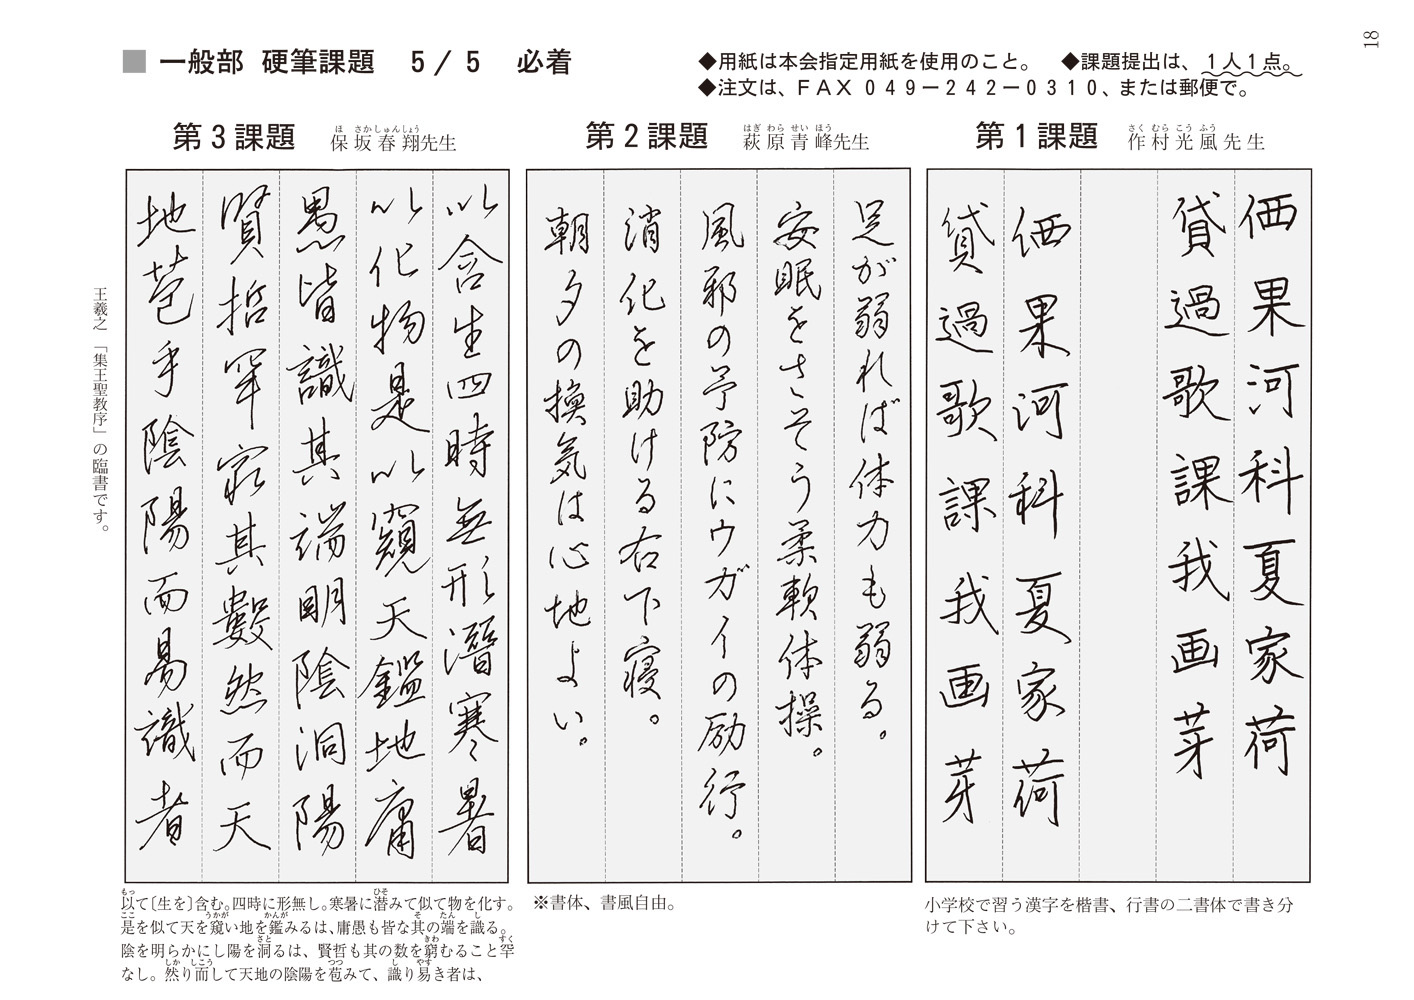 18
■ 一般部 硬筆課題 5/5 必着
◆用紙は本会指定用紙を使用のこと。 ◆課題提出は、1人1点。
◆注文は、FAX049-242-0310、または郵便で。
第1課題 作村光風先生
さく むら こう ふう
価果河科夏家荷
貸過歌課我画芽
価果河科夏家荷
貸過歌課我画芽
小学校で習う漢字を楷書、行書の二書体で書き分
けて下さい。
第2課題 萩原青峰先生
はぎ わら せい ほう
足が弱れば体力も弱る。
安眠をさそう柔軟体操。
風邪の予防にウガイの励行。
消化を助ける右下寝。
朝夕の換気は心地よい。
※書体、書風自由。
第3課題 保坂春翔先生
ほ さか しゅん しょう
以含生四時無形潜寒暑
以化物是以窺天鑑地庸
愚皆識其端明陰洞陽
賢哲罕窮其數然而天
地苞乎陰陽而易識者
王羲之「集王聖教序」の臨書です。
もっ ひそ
以て〔生を〕含む。四時に形無し。寒暑に潜みて似て物を化す。
ここ うかが かんが そ たん し
是を似て天を窺い地を鑑みるは、庸愚も皆な其の端を識る。
さと きわ すく
陰を明らかにし陽を洞るは、賢哲も其の数を窮むること罕
しか しこう つつ し やす
なし。然り而して天地の陰陽を苞みて、識り易き者は、